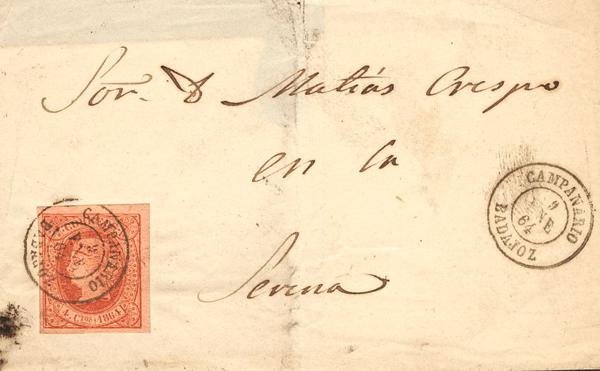 Sor. D Matías Crespo
en la
Serena
CAMPANARIO
9
ENE
64
BADAJOZ
CAMPANARIO
4 CTOS 1864